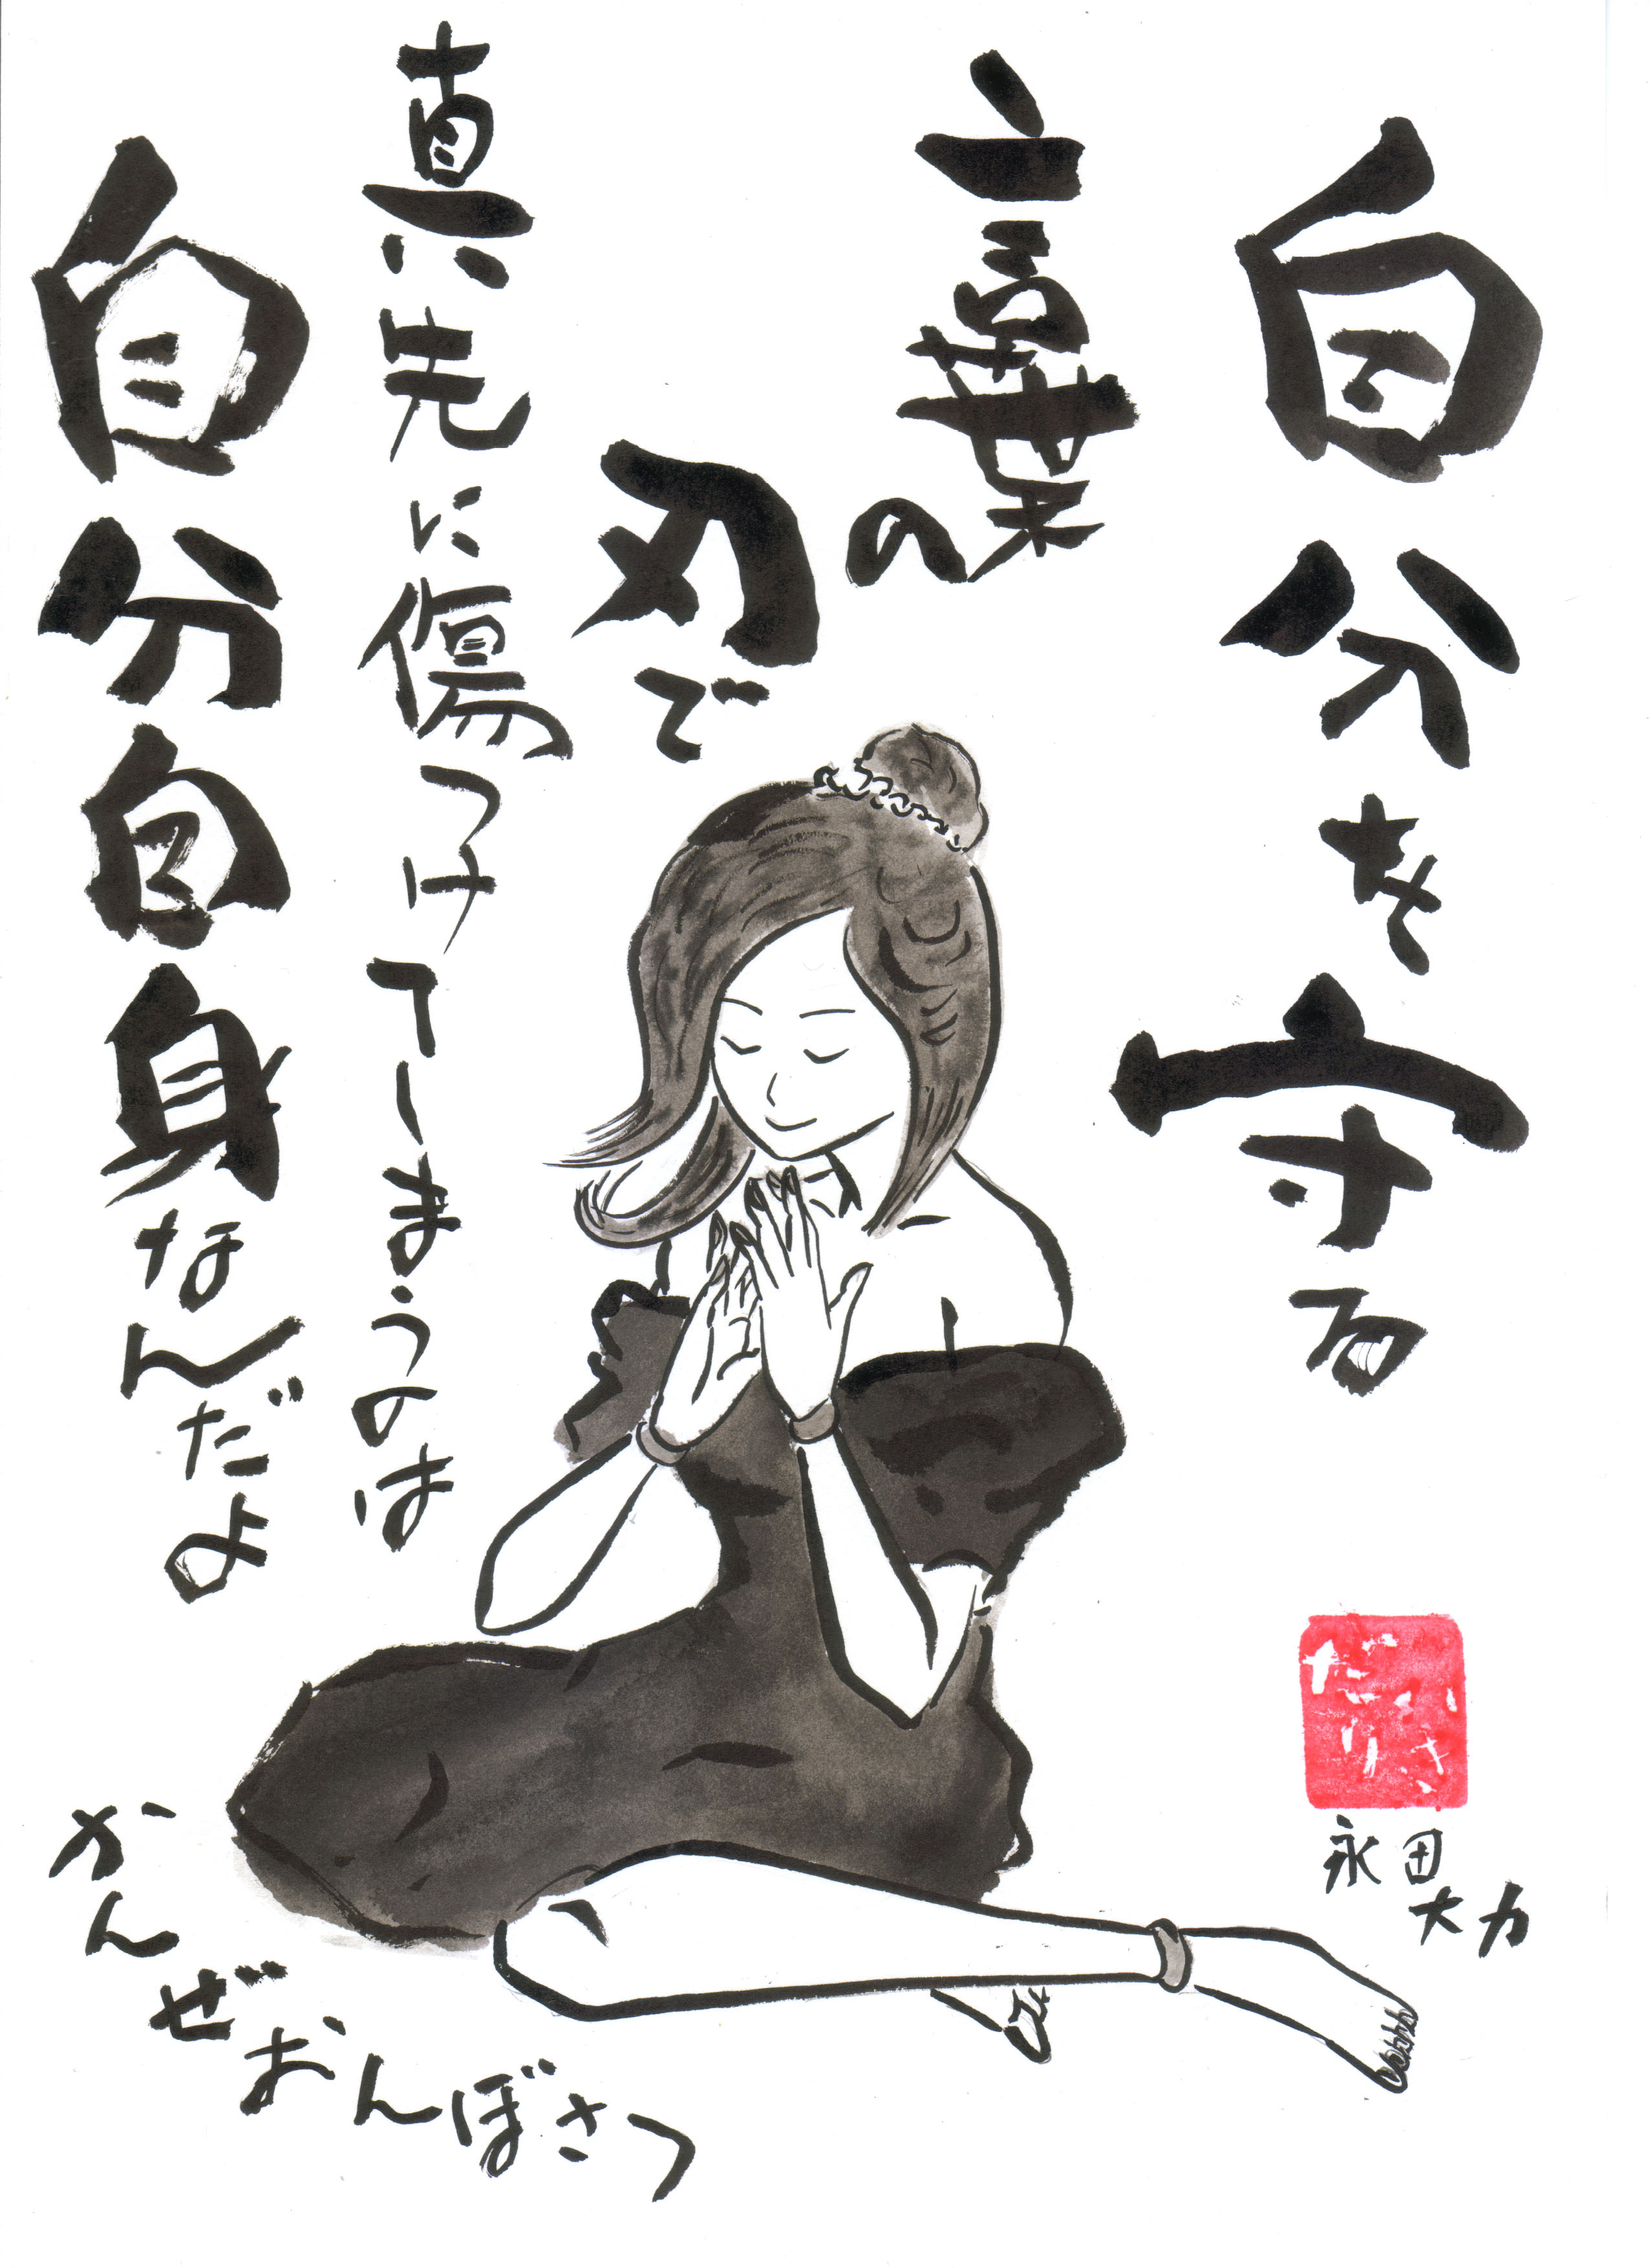 自分を守る
言葉の
刃で
真先に傷つけてしまうのは
自分自身なんだよ
かんぜおんぼさつ
永田
大力